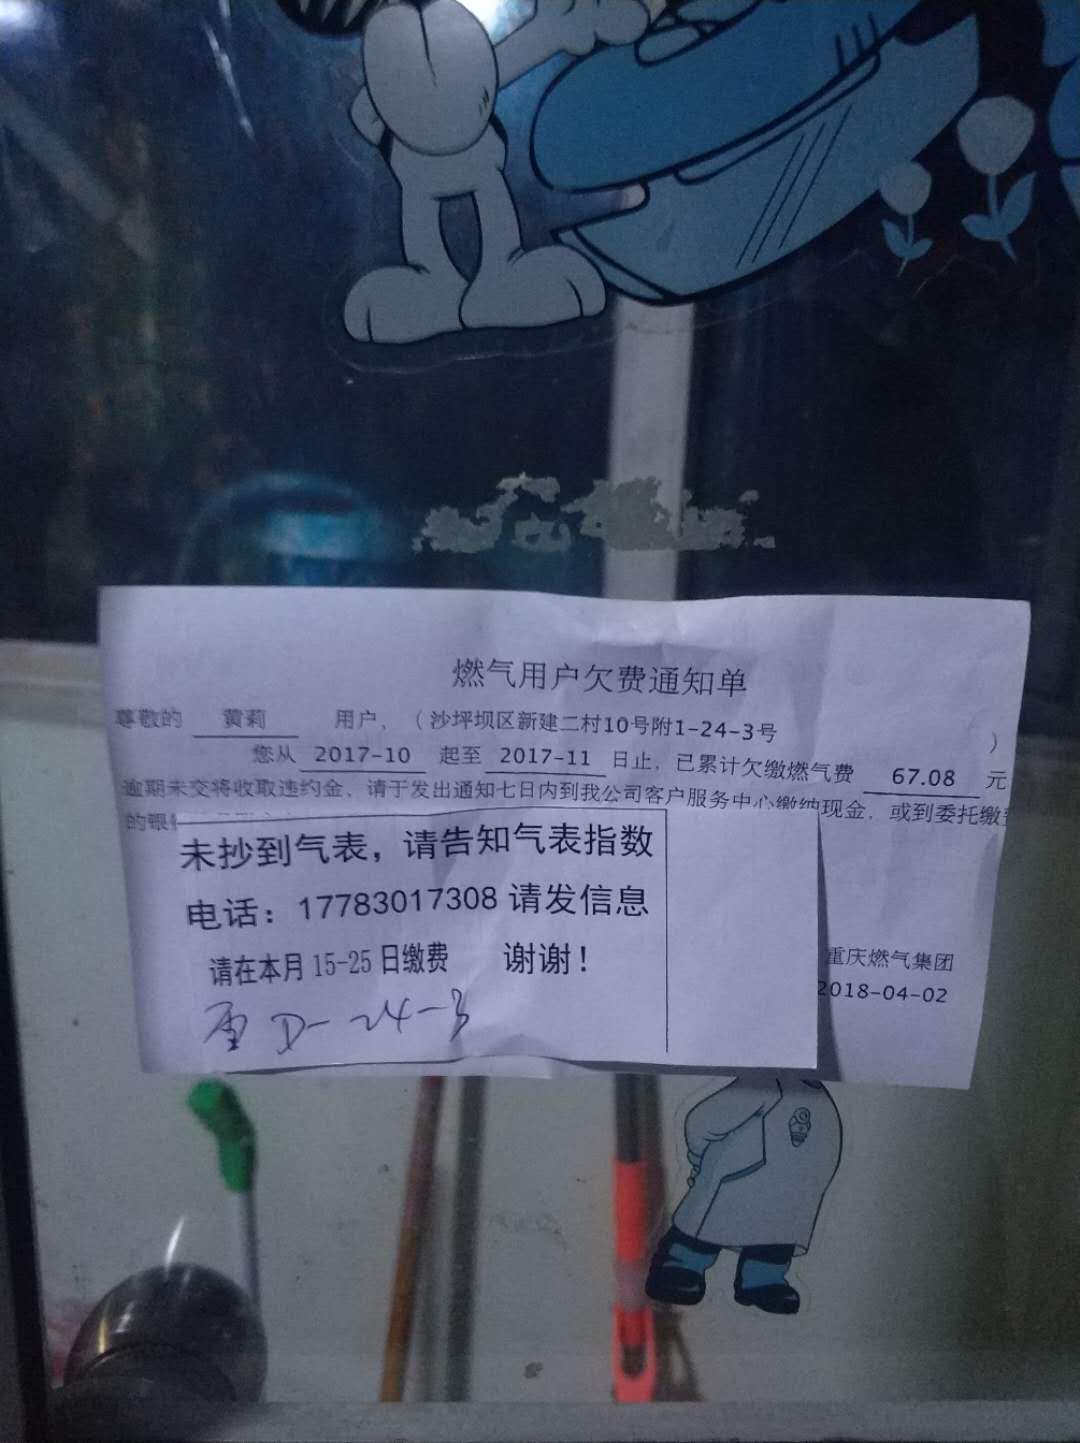 燃气用户欠费通知单
尊敬的 黄莉 用户，（沙坪坝区新建二村10号附1-24-3号 ）
您从 2017-10 起至 2017-11 日止，已累计欠缴燃气费 67.08 元
逾期未交将收取违约金，请于发出通知七日内到我公司客户服务中心缴纳现金，或到委托缴费
的银
未抄到气表，请告知气表指数
电话：17783017308 请发信息
请在本月 15-25 日缴费 谢谢！
重庆燃气集团
2018-04-02
24-3